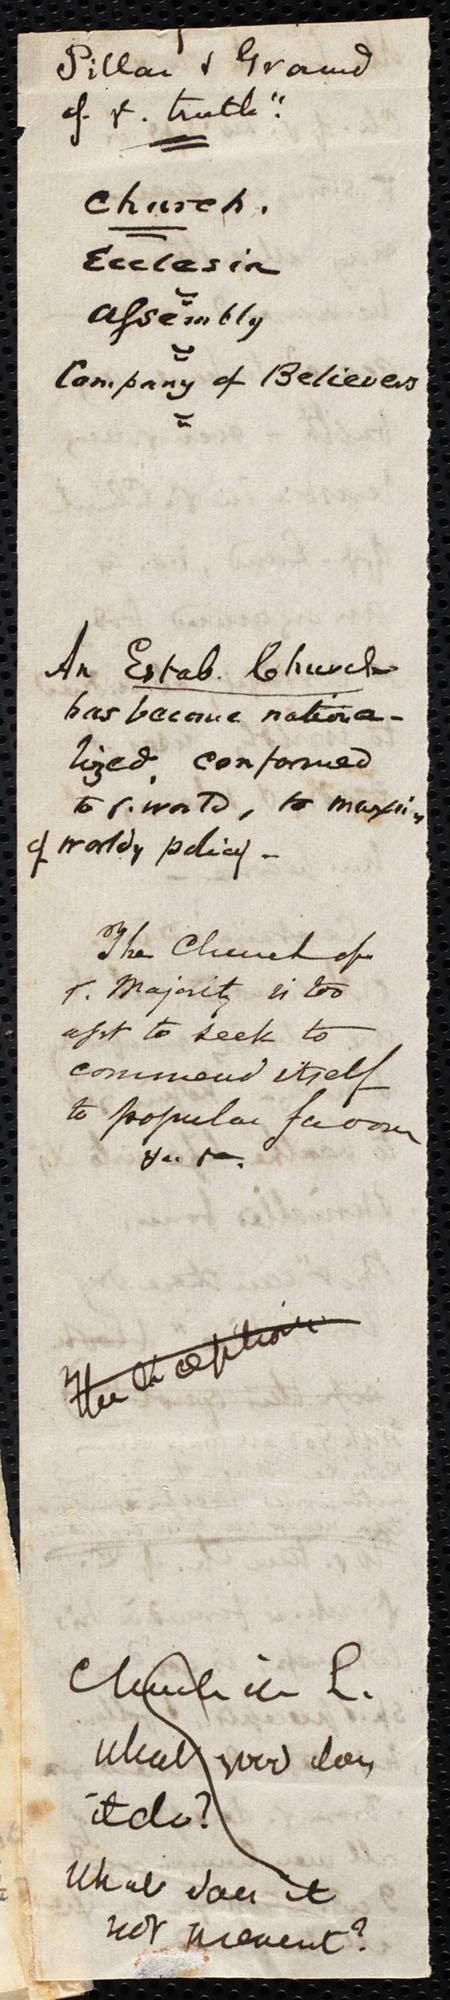 Pillar & Ground
of t. truth".
Church.
Ecclesia
Assembly
Company of Believers
An Estab. Church
has become nationa-
lized, conformed
to t. world, to maxims
of worldy policy -
The Church of
t. Majority is too
apt to seek to
commend itself
to popular favour
Church in L.
What good does
it do?
What does it
not prevent?